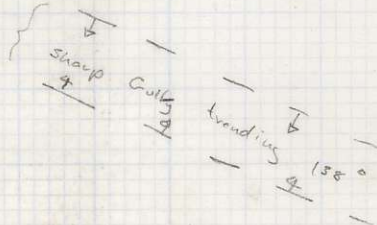 sharp Gully trending 138°